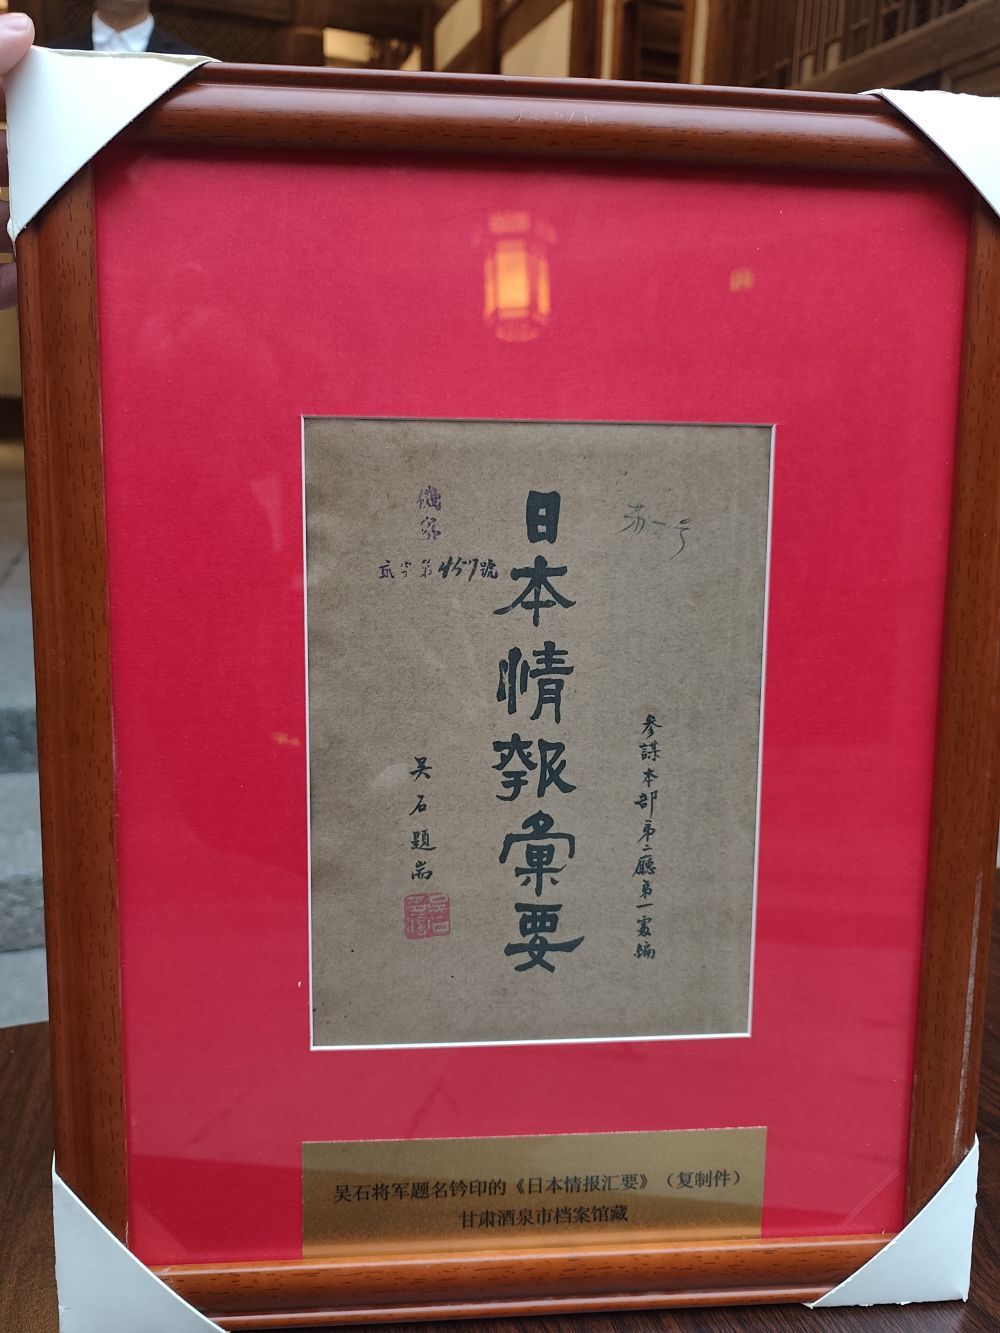 苏一号
參謀本部第二廳第一處編
日本情報彙要
機密
貳字第457號
吴石題耑
吴石将军题名钤印的《日本情报汇要》（复制件）
甘肃酒泉市档案馆藏